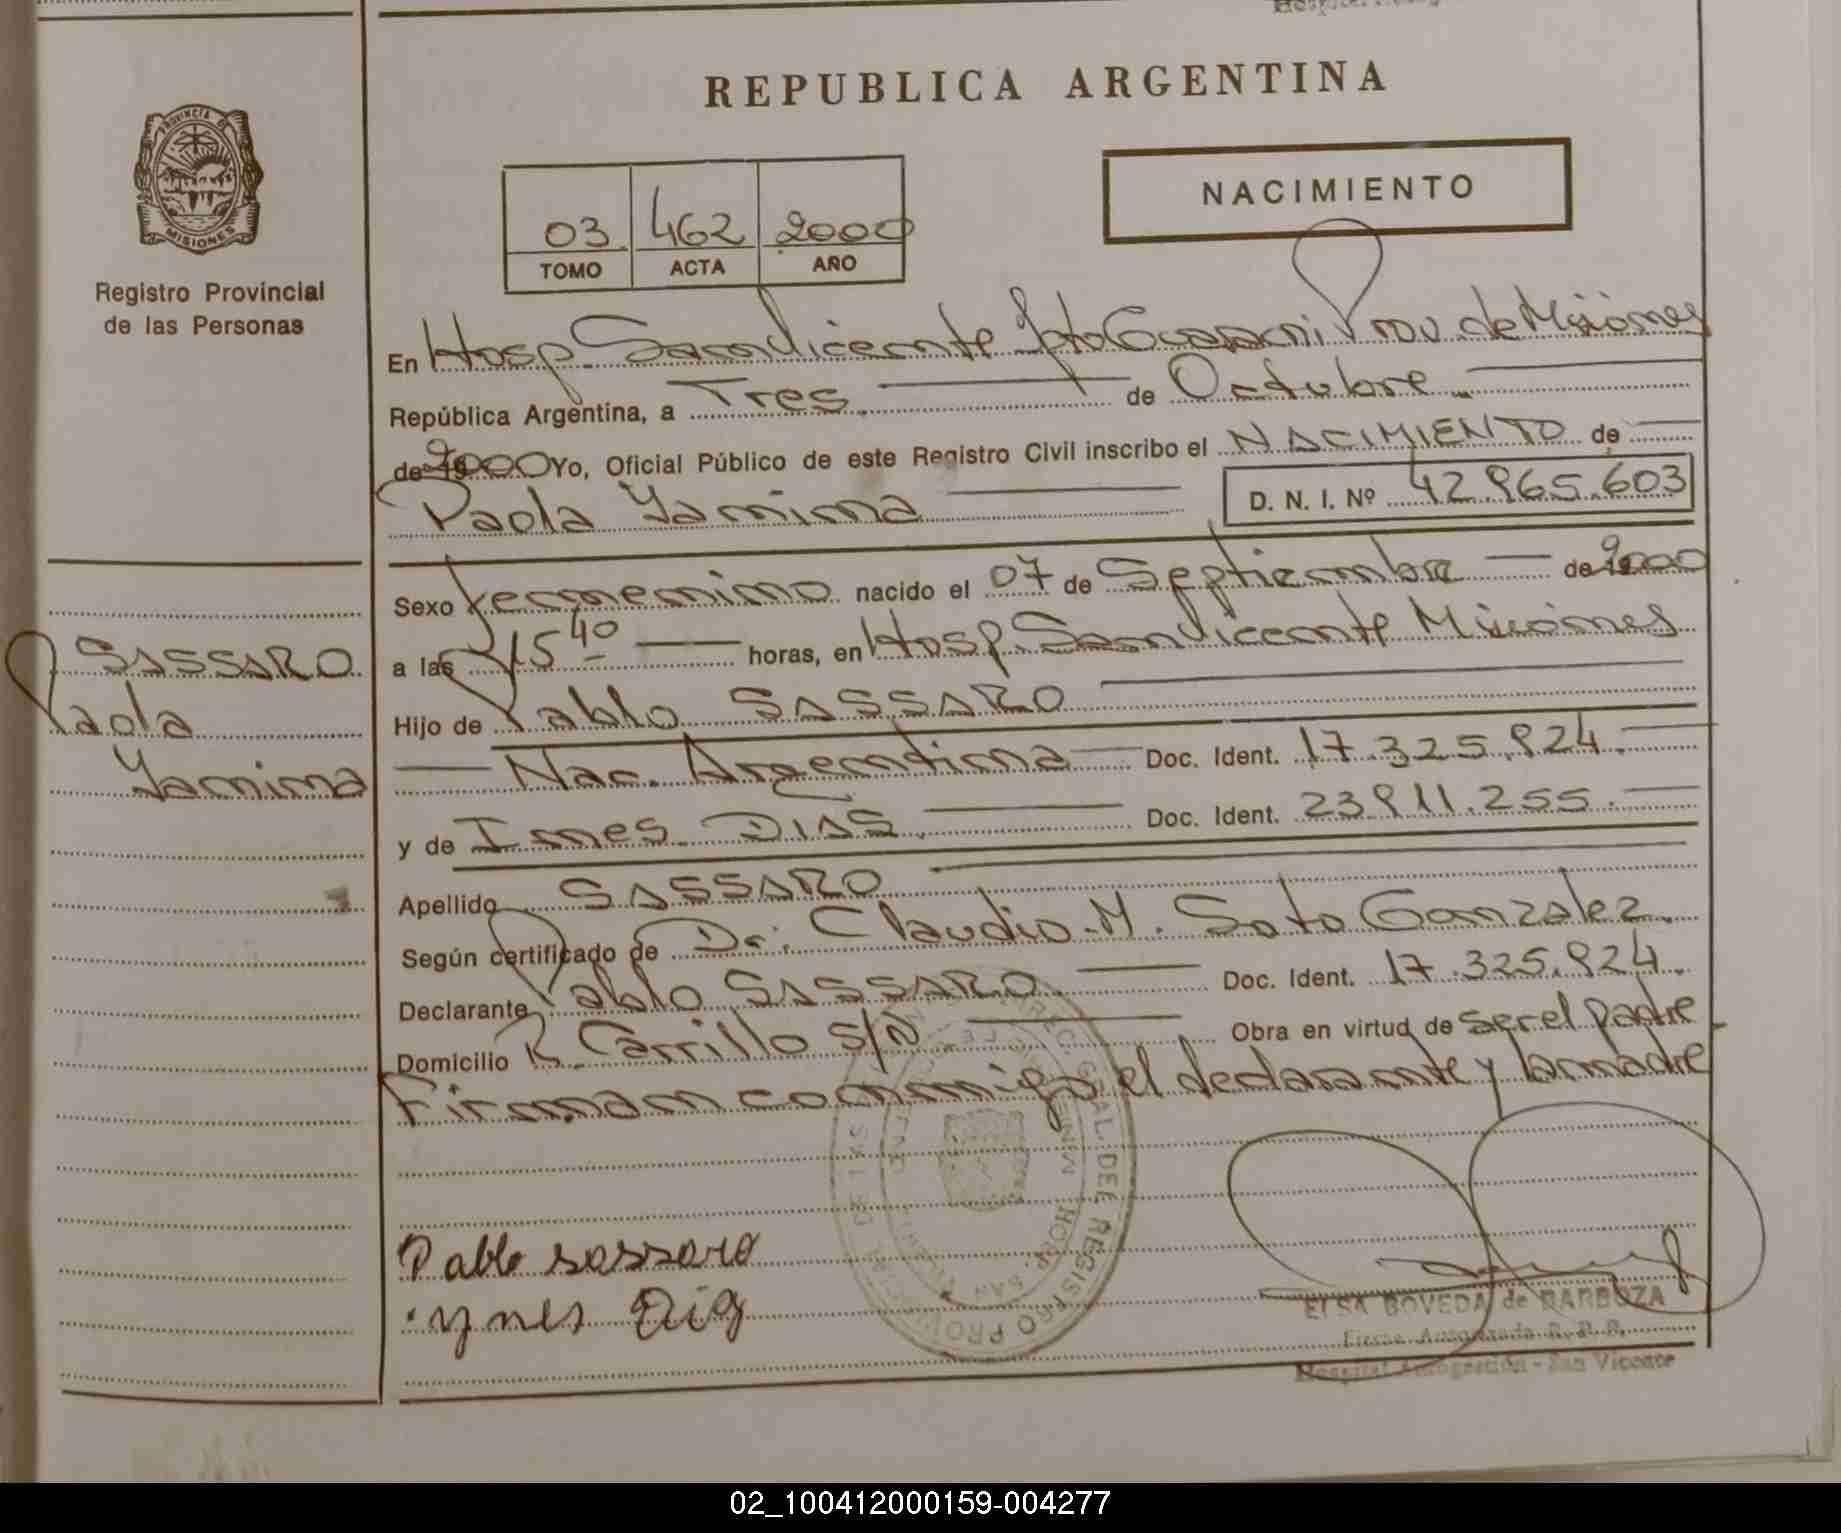 REPUBLICA ARGENTINA
PROVINCIA DE
MISIONES
Registro Provincial
de las Personas
NACIMIENTO
03 462 2000
TOMO ACTA AÑO
En Hosp. San Vicente Dpto Guarani Prov. de Misiones
República Argentina, a Tres de Octubre
de 19 2000 Yo, Oficial Público de este Registro Civil inscribo el NACIMIENTO de
Paola Yamima
D. N. I. Nº 42.865.603
Sexo femenino nacido el 07 de Septiembre de 19 2000
a las 15 40 horas, en Hosp. San Vicente Misiones
Hijo de Pablo SASSARO
Nac. Argentina Doc. Ident. 17.325.824.
y de Ines DIAS Doc. Ident. 23811.255.
Apellido SASSARO
Según certificado de Dr. Claudio M. Soto Gonzalez.
Declarante Pablo SASSARO Doc. Ident. 17.325.824.
Domicilio R. Carrillo S/N Obra en virtud de ser el padre
Firman conmigo el declarante y la madre
SASSARO
Paola
Yamima
Pablo sassaro
ynes Diaz
ELSA BOVEDA de BARBOZA
Firma Autorizada R. P. P.
Hospital Autogestión - San Vicente
02_100412000159-004277